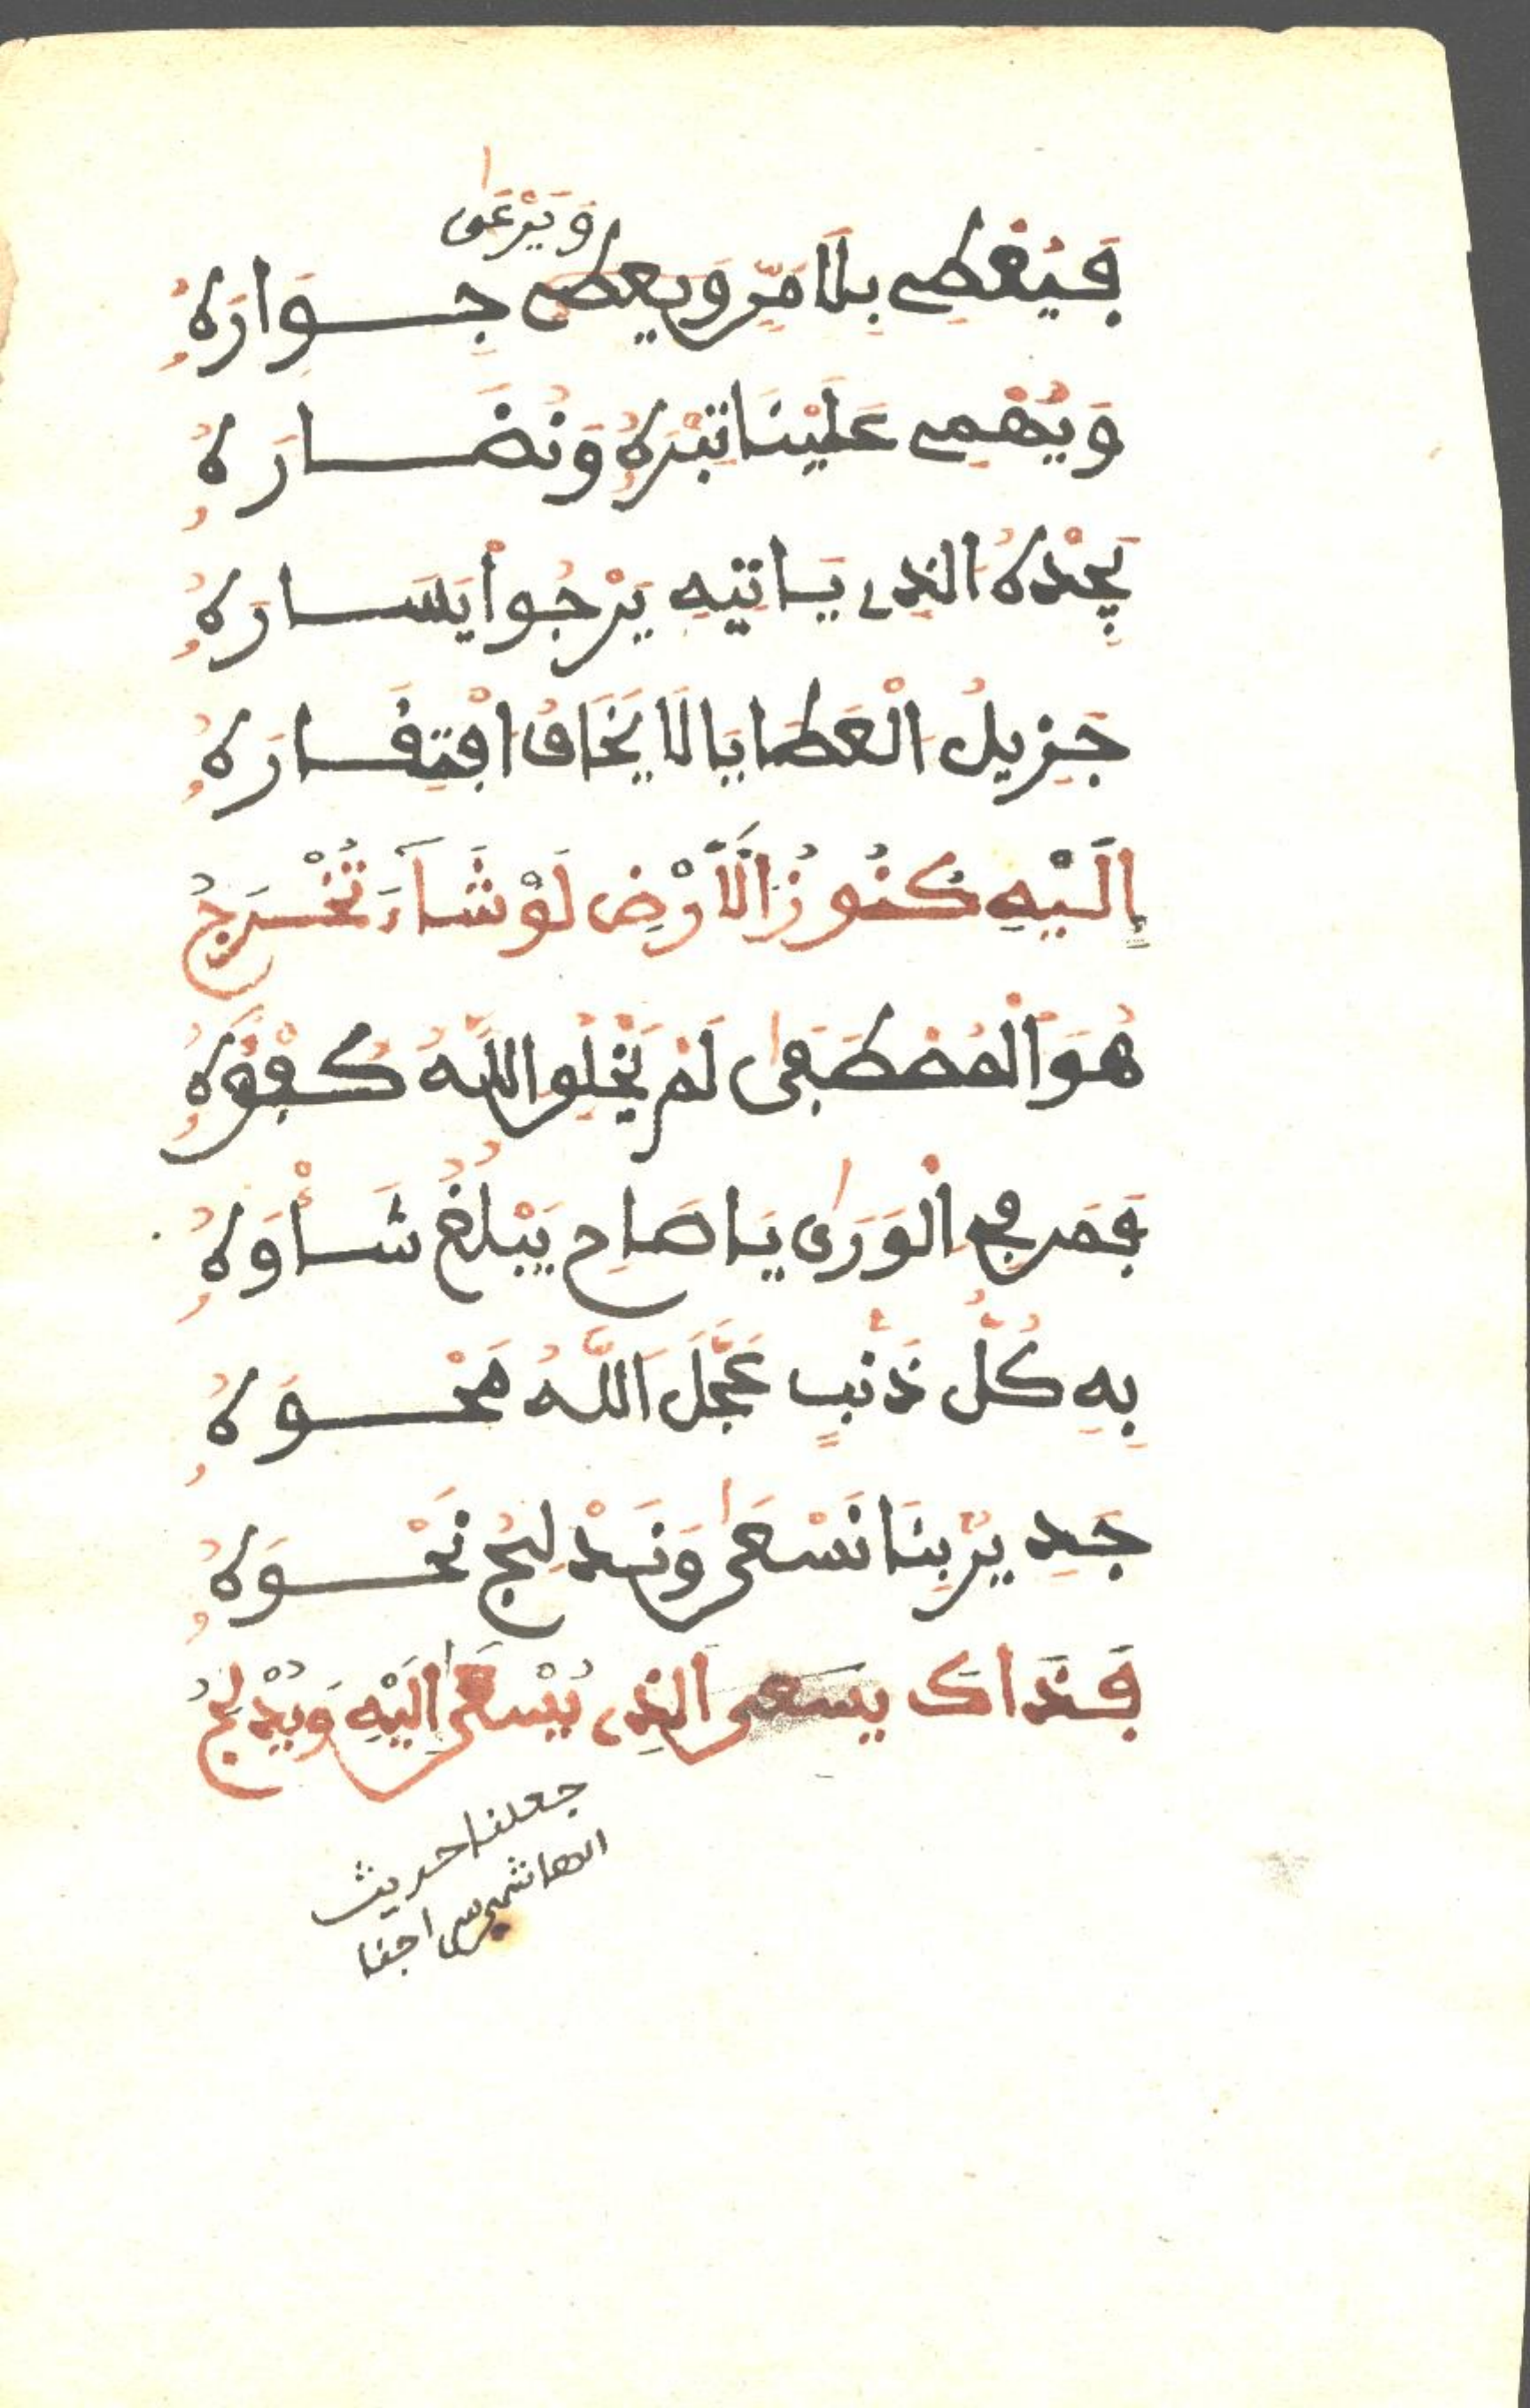 وَيَرْعَى
فَيُعْطِي بِلَا مَنٍّ وَيعطي جِوَارَهُ
وَيُهْمِي عَلَيْنَا تِبْرَهُ وَنُضَارَهُ
يَجِدْهُ الَّذِي يَاتِيهِ يَرْجُواْ يَسَارَهُ
جَزِيلُ الْعَطَايَا لَا يَخَافُ افْتِقَارَهُ
إِلَيْهِ كُنُوزُ الْأَرْضِ لَوْ شَآءَ تُخْرَجُ
هُوَ الْمُصْطَفَى لَمْ يَخْلُقِ اللَّهُ كُفْؤَهُ
فَمَن فِي الْوَرَى يَا صَاحِ يَبْلُغُ شَأْوَهُ
بِهِ كُلُّ ذَنْبٍ عَجَّلَ اللَّهُ مَحْوَهُ
جَدِيرٌ بِنَا نَسْعَى وَنُدْلِجُ نَحْوَهُ
فَذَاكَ يسَعى الذِي يُسْعَى إِلَيْهِ وَيُدْلَجُ
جعلنا حديث
الهاشمي